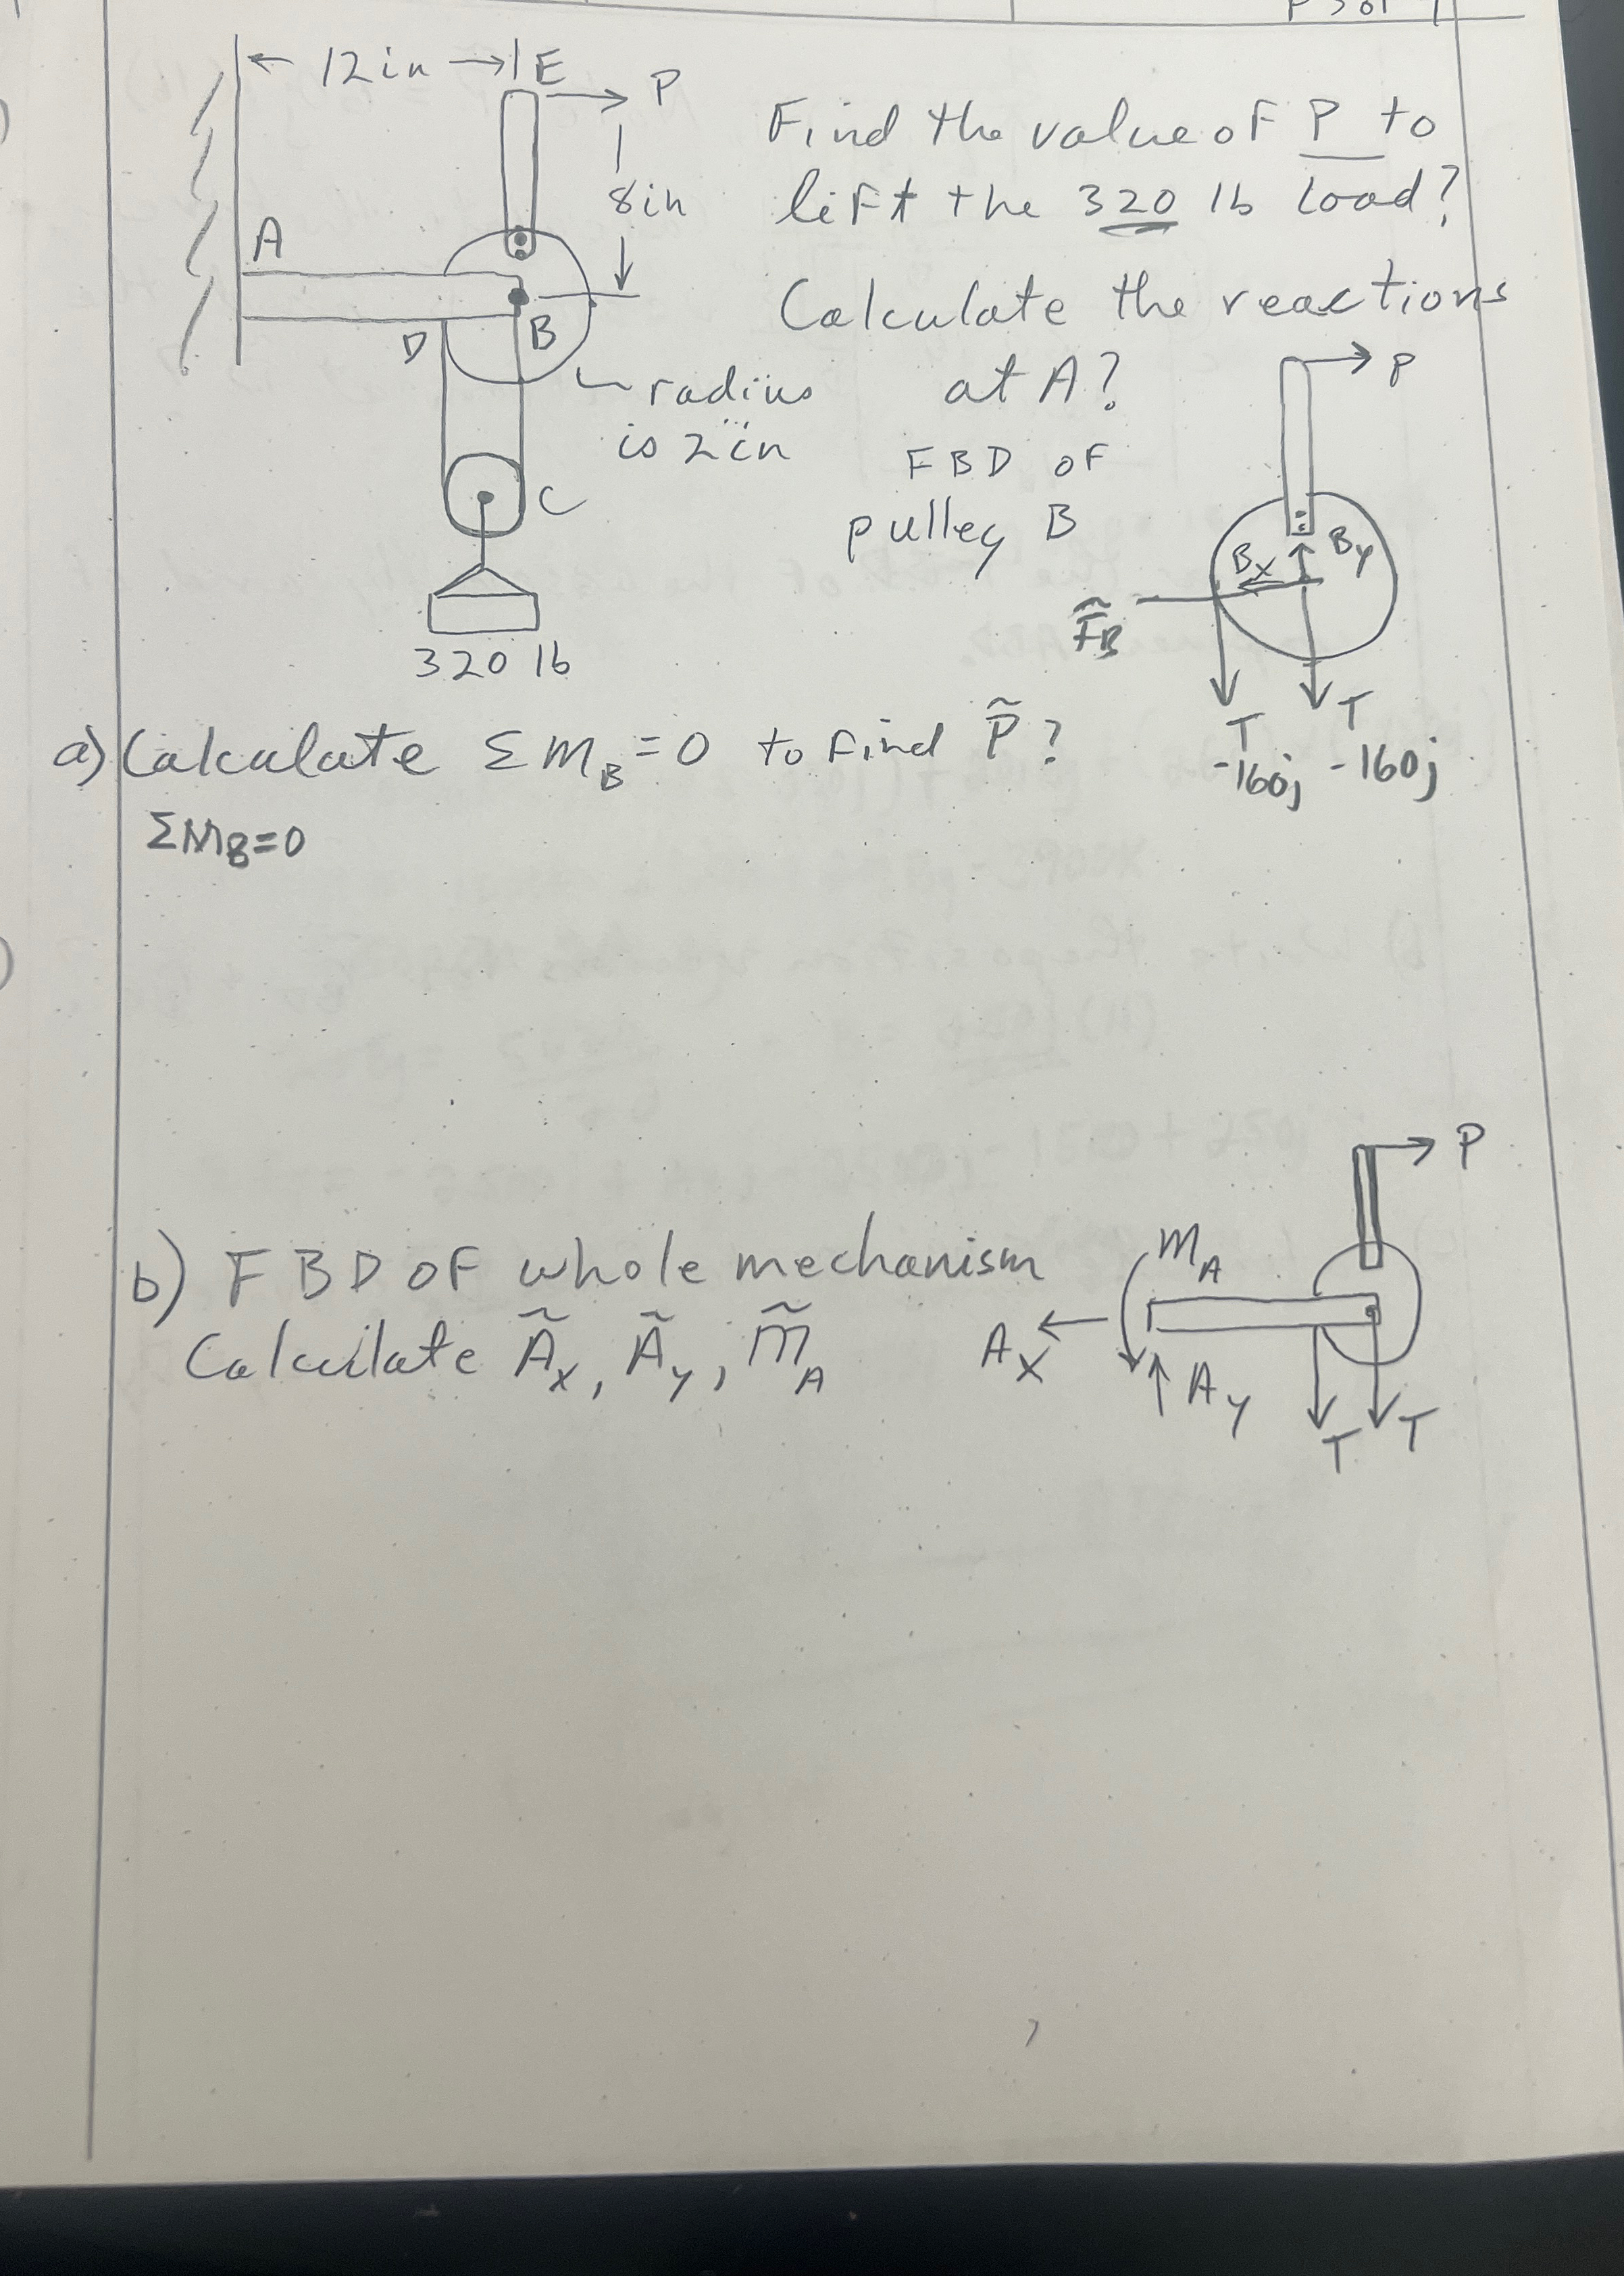 P 3 of
← 12 in → E
P
8 in
A
D
B
radius
is 2 in
C
320 lb
Find the value of P to
lift the 320 lb load?
Calculate the reactions
at A?
FBD of
pulley B
P
Bx
By
FB
T
T
-160j
-160j
a) Calculate ΣMB=0 to find P̃?
ΣMB=0
b) FBD of whole mechanism
Calculate Ãx, Ãy, M̃A
P
MA
Ax
Ay
T
T